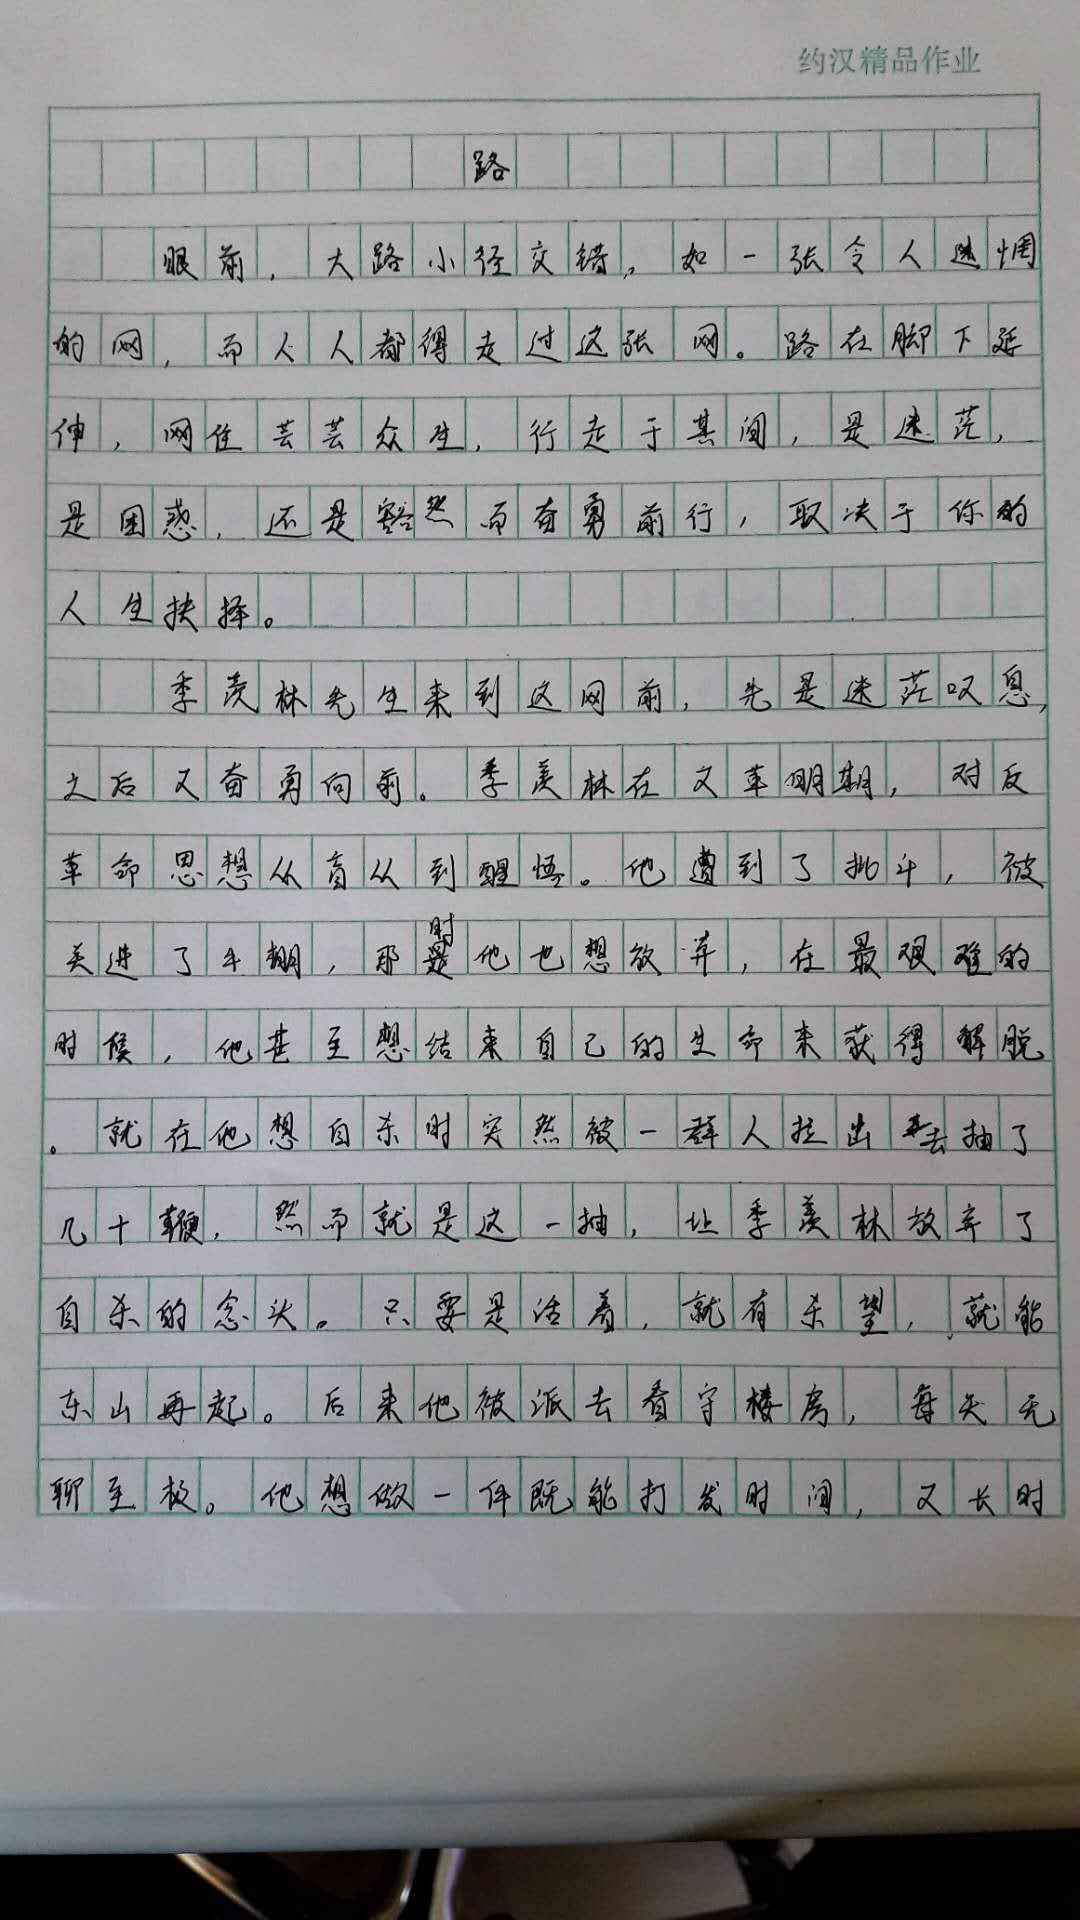 约汉精品作业
路
眼前，大路小径交错，如一张令人迷惘
的网，而人人都得走过这张网。路在脚下延
伸，网住芸芸众生，行走于其间，是迷茫，
是困惑，还是豁然而奋勇前行，取决于你的
人生抉择。
季羡林先生来到这网前，先是迷茫叹息，
之后又奋勇向前。季羡林在文革期，对反
革命思想从盲从到醒悟。他遭到了批斗，被
关进了牛棚，那时他也想放弃，在最艰难的
时候，他甚至想结束自己的生命来获得解脱
。就在他想自杀时突然被一群人拉出去抽了
几十鞭，然而就是这一抽，让季羡林放弃了
自杀的念头。只要是活着，就有希望，就能
东山再起。后来他被派去看守楼房，每天无
聊至极。他想做一件既能打发时间，又长时